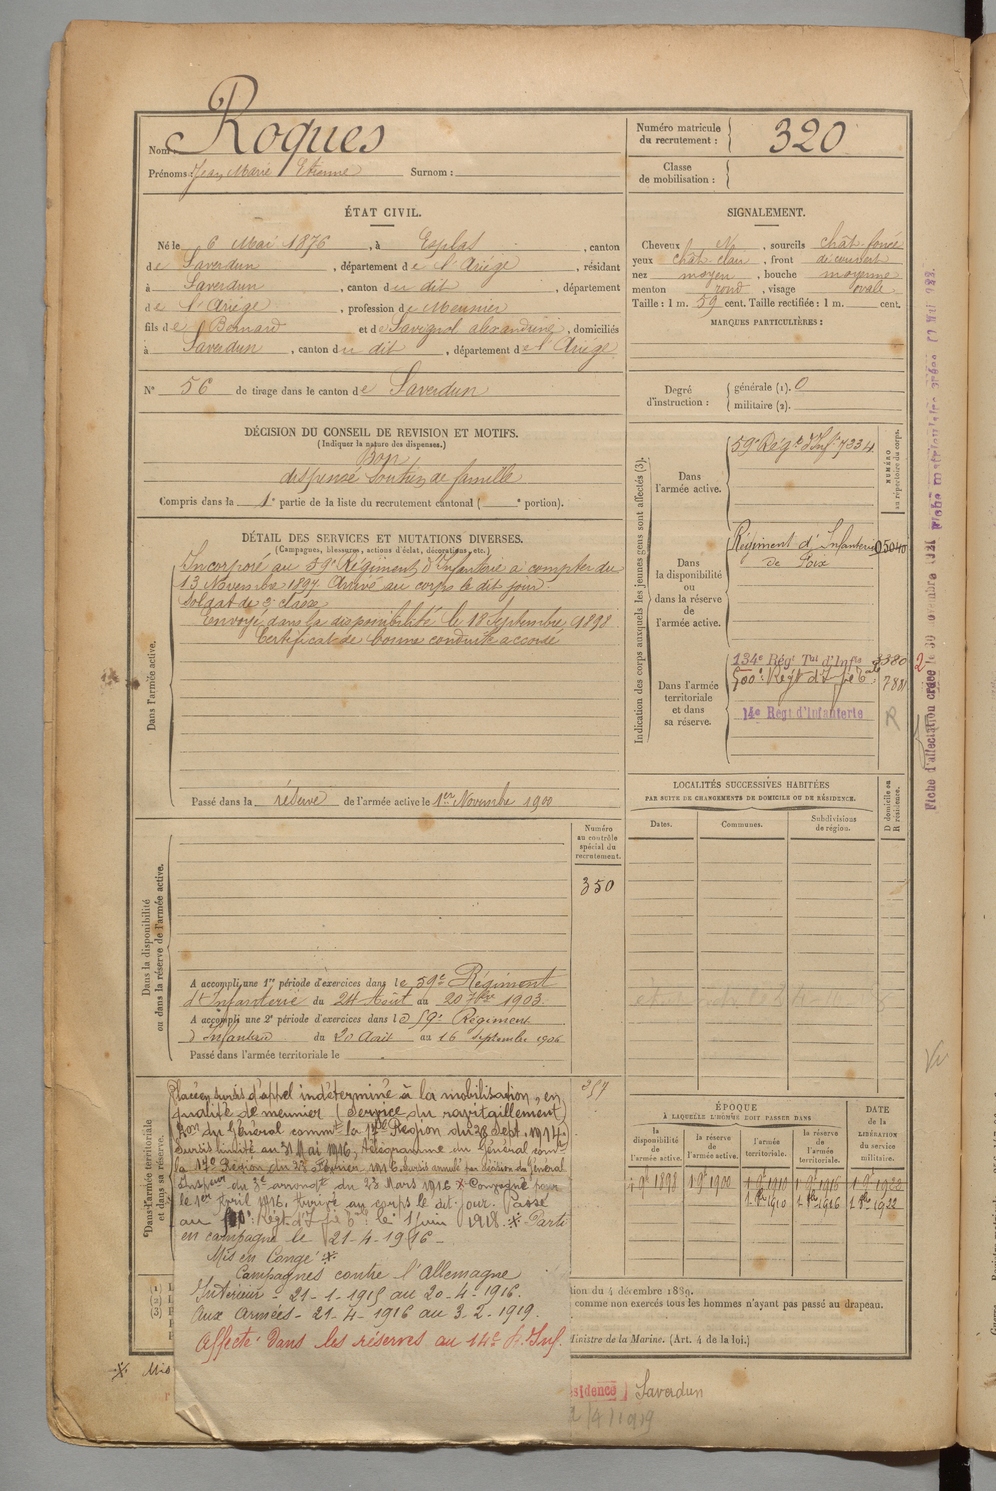 Nom : Roques
Prénoms : Jean Marie Etienne Surnom :
Numéro matricule du recrutement : 320
Classe de mobilisation :
ÉTAT CIVIL.
Né le 6 Mai 1876, à Esplas, canton
de Saverdun, département de l'Ariège, résidant
à Saverdun, canton du dit, département
de l'Ariège, profession de Meunier
fils de Bernard et de Savignol alexandrine, domiciliés
à Saverdun, canton du dit, département de l'Ariège
N° 56 de tirage dans le canton de Saverdun
SIGNALEMENT.
Cheveux N, sourcils chât. foncé
yeux chât. clair, front découvert
nez moyen, bouche moyenne
menton rond, visage ovale
Taille : 1 m. 59 cent. Taille rectifiée : 1 m. cent.
MARQUES PARTICULIÈRES :
Degré d'instruction : générale (1). 0
militaire (2).
DÉCISION DU CONSEIL DE REVISION ET MOTIFS.
(Indiquer la nature des dispenses.)
Bon
dispensé soutien de famille
Compris dans la 1e partie de la liste du recrutement cantonal ( e portion).
DÉTAIL DES SERVICES ET MUTATIONS DIVERSES.
(Campagnes, blessures, actions d'éclat, décorations, etc.)
Dans l'armée active.
Incorporé au 59e Régiment d'Infanterie à compter du
13 Novembre 1897 Arrivé au corps le dit jour
Soldat de 2e classe
Envoyé dans la disponibilité le 18 Septembre 1898
Certificat de bonne conduite accordé
Passé dans la réserve de l'armée active le 1er Novembre 1900
Indication des corps auxquels les jeunes gens sont affectés (3).
NUMÉRO au répertoire du corps.
Dans l'armée active.
59e Régt d'Inf. 7334
Dans la disponibilité ou dans la réserve de l'armée active.
Régiment d'Infanterie 05040
de Foix
Dans l'armée territoriale et dans sa réserve.
134e Régt Tal d'Infie
500e Régt d'I
14e Régt d'Infanterie R
Fiche matriculaire créée
Fiche d'affectation créée le 30
LOCALITÉS SUCCESSIVES HABITÉES
PAR SUITE DE CHANGEMENTS DE DOMICILE OU DE RÉSIDENCE.
D domicile ou R résidence.
Dates. Communes. Subdivisions de région.
Dans la disponibilité ou dans la réserve de l'armée active.
Numéro au contrôle spécial du recrutement.
350
A accompli une 1re période d'exercices dans le 59e Régiment
d'Infanterie du 24 Août au 20 7bre 1903
A accompli une 2e période d'exercices dans le 59e Régiment
d'Infanterie du 20 Août au 16 Septembre 1906
Passé dans l'armée territoriale le
Dans l'armée territoriale et dans sa réserve.
Placé en sursis d'appel indéterminé à la mobilisation, en
qualité de meunier (Service du ravitaillement)
Don du Général commt la 17e Région du 28 Sept. 1914.
Sursis limité au 31 Mai 1916, télégramme du Général comt
la 17e Région du 1916. Sursis annulé par décision du Général
Inspecteur du 3e arrondt du 23 Mars 1916 pour
le 1er Avril 1916. Arrivé au corps le dit jour. Passé
au Régt d'I le 1 Juin 1918. Parti
en campagne le 21-4-1916
Mis en Congé
Campagnes contre l'Allemagne
Intérieur - 21-1-1915 au 20-4-1916.
Aux Armées - 21-4-1916 au 3-2-1919.
Affecté dans les réserves au 14e R. Inf.
ÉPOQUE
À LAQUELLE L'HOMME DOIT PASSER DANS
la disponibilité de l'armée active. la réserve de l'armée active. l'armée territoriale. la réserve de l'armée territoriale.
DATE de la LIBÉRATION du service militaire.
1 9e 1898 1 9e 1900 1 9e 1910 1 9e 1916 1 9e 1922
1910 1916 1922
tion du 4 décembre 1889.
comme non exercés tous les hommes n'ayant pas passé au drapeau.
Ministre de la Marine. (Art. 4 de la loi.)
Mis
sidence Saverdun
/4/1919